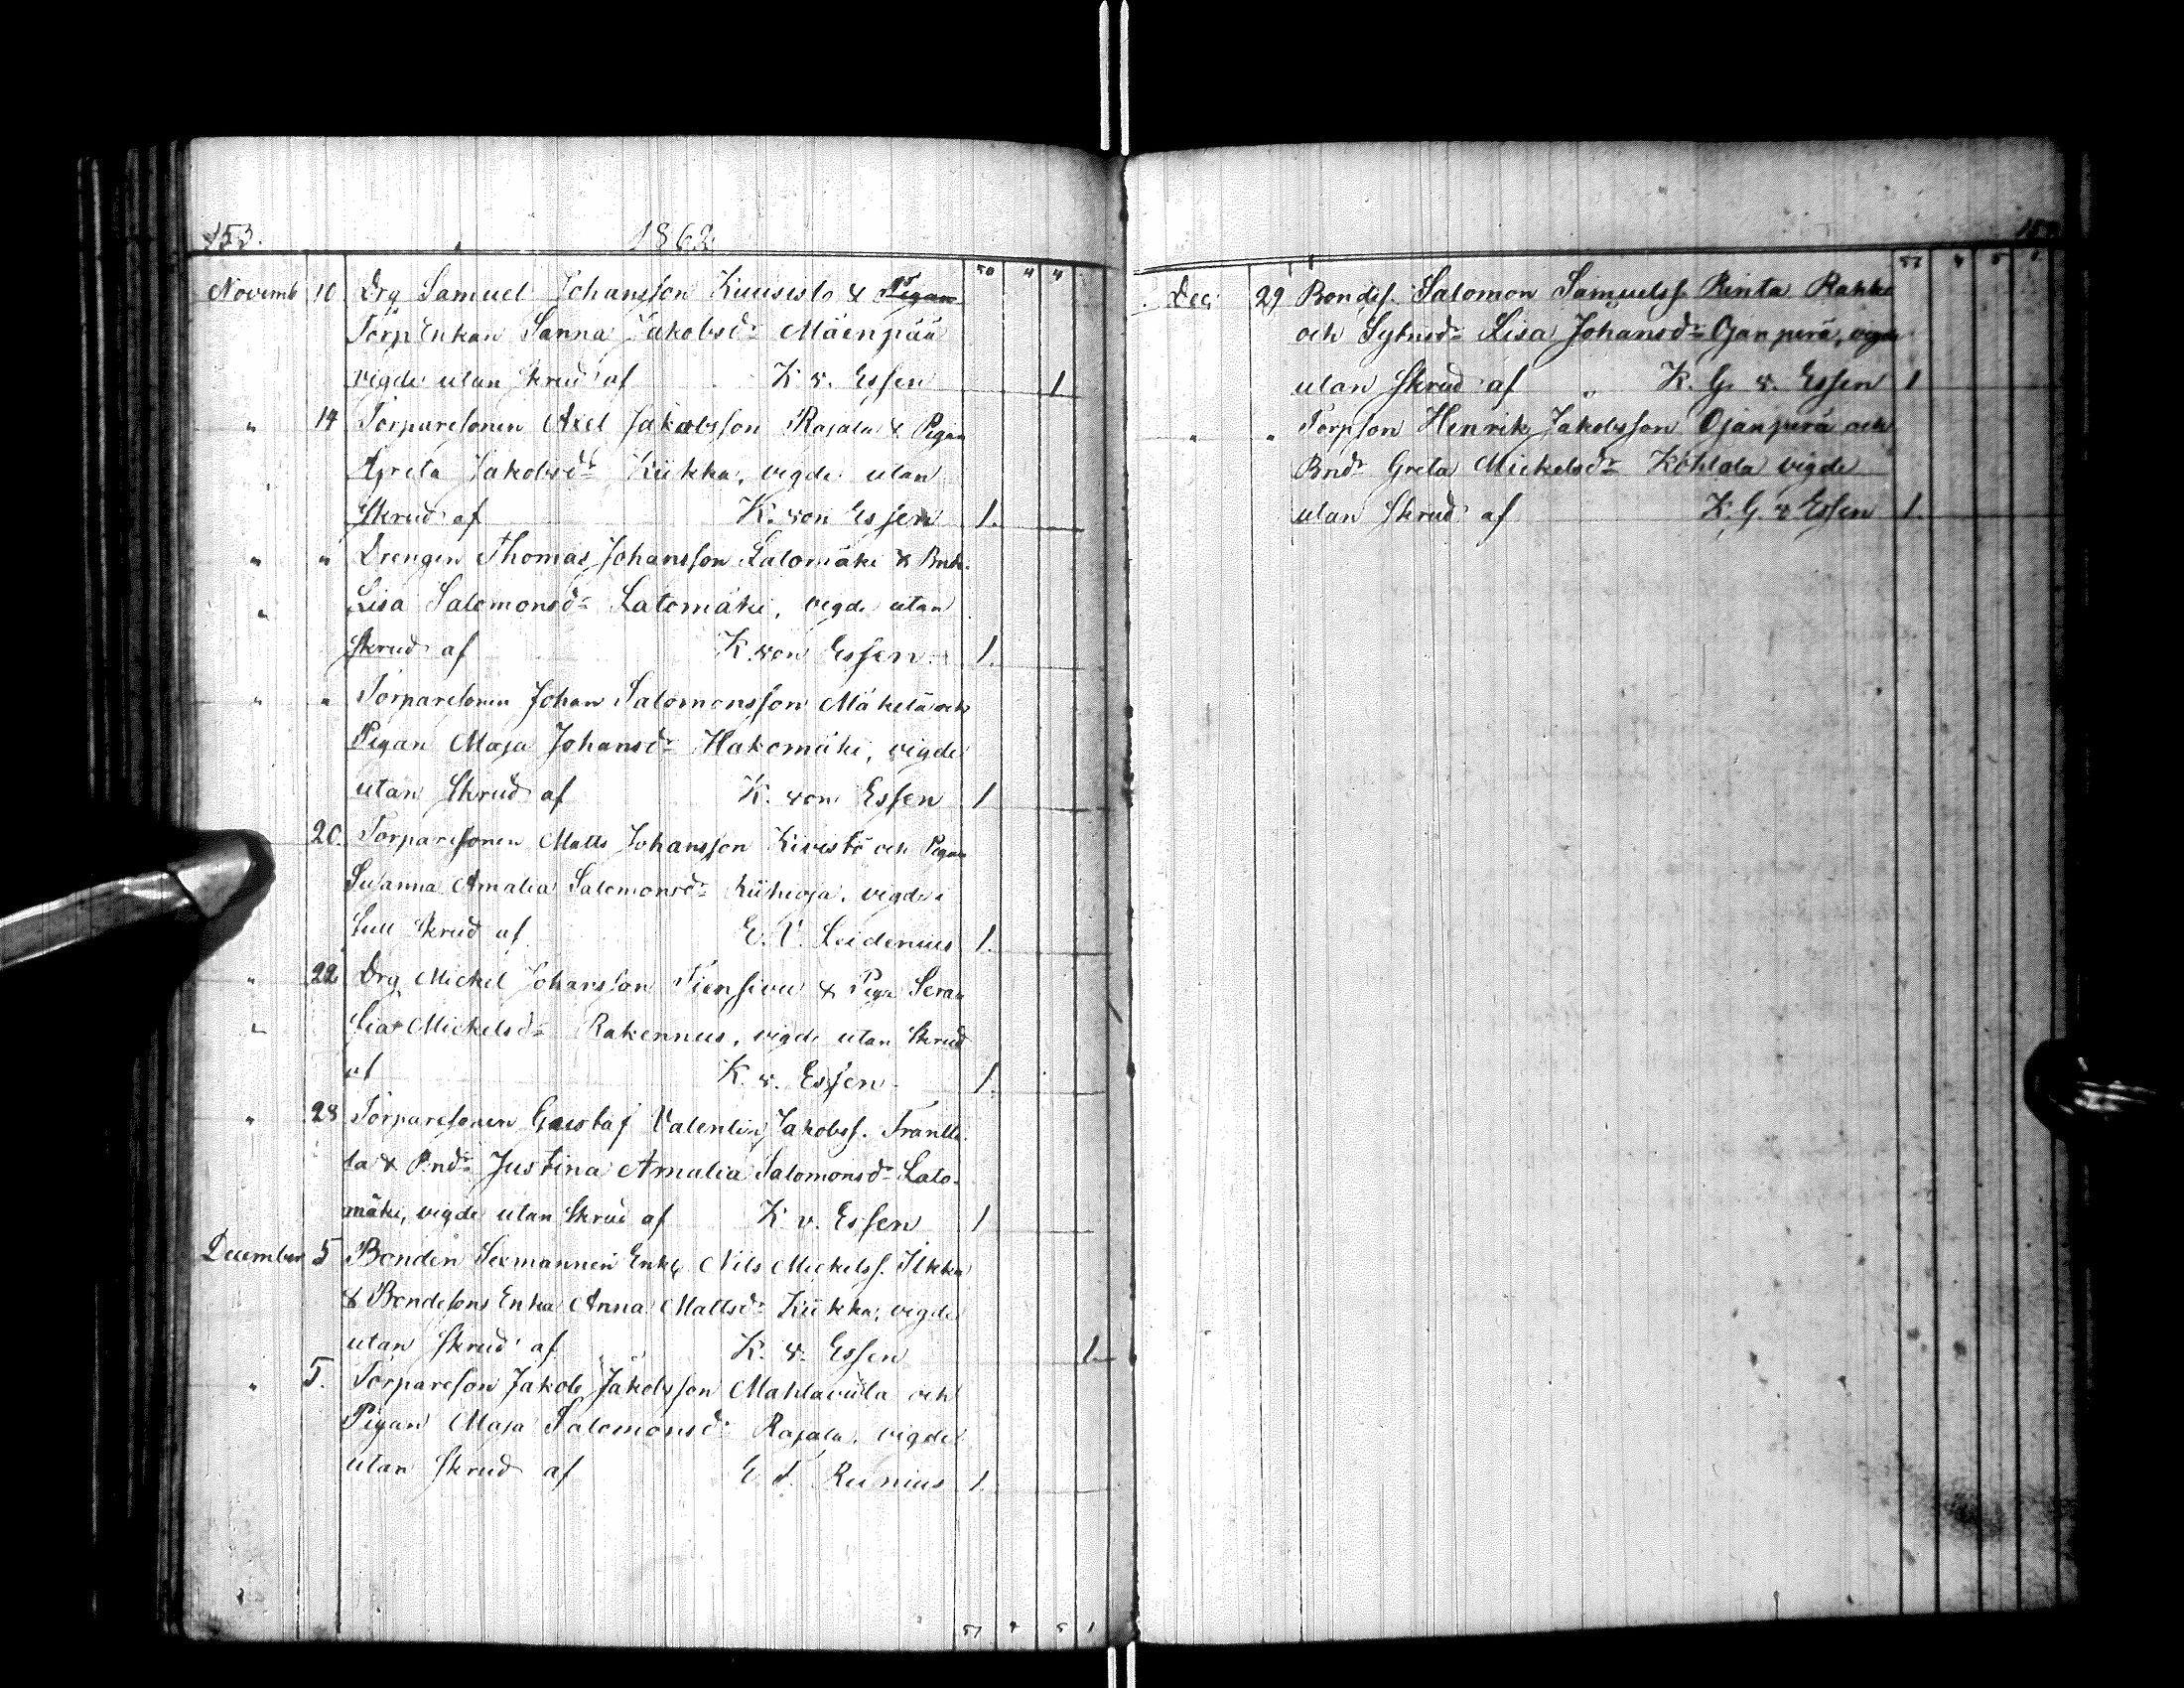 153.
1862
50 4 4
Novemb 10 Drg Samuel Johansson Kuusisto & Pigan
TorpEnkan Sanna Jakobsdr Mäenpää
vigde utan skrud af K v. Essen 1
" 14 Torparesonen Axel Jakobsson Rajala & Pigan
Greta Jakobsdr Kiikka, vigde utan
skrud af K. von Essen 1.
" " Drengen Thomas Johansson Latomäki & Bndr
" Lisa Salomonsdr Latomäki, vigde utan
skrud af K. von Essen 1.
" " Torparesonen Johan Salomonsson Mäkelä och
Pigan Maja Johansdr Hakomäki, vigde
utan skrud af K. von Essen 1
20. Torparesonen Matts Johansson Kivistö och Pigan
Susanna Amalia Salomonsdr Kiihioja, vigde i
full skrud af E. V. Leidenius 1.
" 22 Drg Mickel Johansson Tiensivu & Piga Sera
" fia Mickelsdr Rakennus, vigde utan skrud
af K. v. Essen 1.
" 28 Torparesonen Gustaf Valentin Jakobss. Frantti
la & Bndr Justina Amalia Salomonsdr Lato-
mäki, vigde utan skrud af K v. Essen 1
December 5 Bonden Sexmannen Enkl Nils Mickelss. Ilkka
& Bondesons Enka Anna Mattsdr Kiikka, vigde
utan skrud af K. v. Essen 1.
" 5. Torpareson Jakob Jakobsson Mahlaviita och
Pigan Maja Salomonsdr Rajala, vigde
utan skrud af E. F. Reinius 1.
51 4 5 1
51 4 5 1
Dec. 29 Bondes. Salomon Samuelss. Rinta Rahko
och Sytnsdr Lisa Johansdr Ojanperä, vigde
utan skrud af K. G. v. Essen 1
" " Torpson Henrik Jakobsson Ojanperä och
Bndr Greta Mickelsdr Kohtala vigde
utan skrud af K. G. v Essen 1.